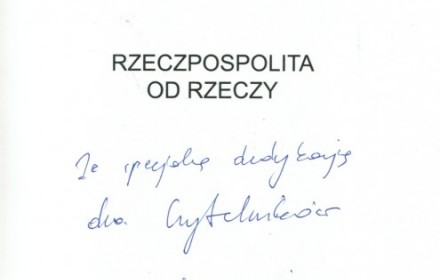 RZECZPOSPOLITA
OD RZECZY
Ze specjalną dedykacją
dla Czytelników